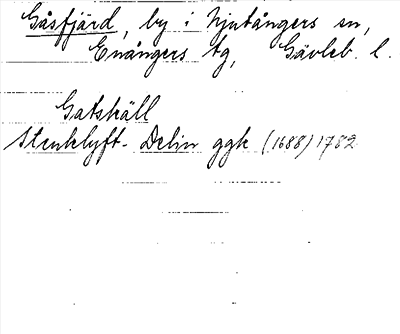 Gåsfjärd, by i Njutångers sn,
Enångers tg, Gävleb. l.
Gatskäll
Stenklyft- Delin ggk (1688) 1782